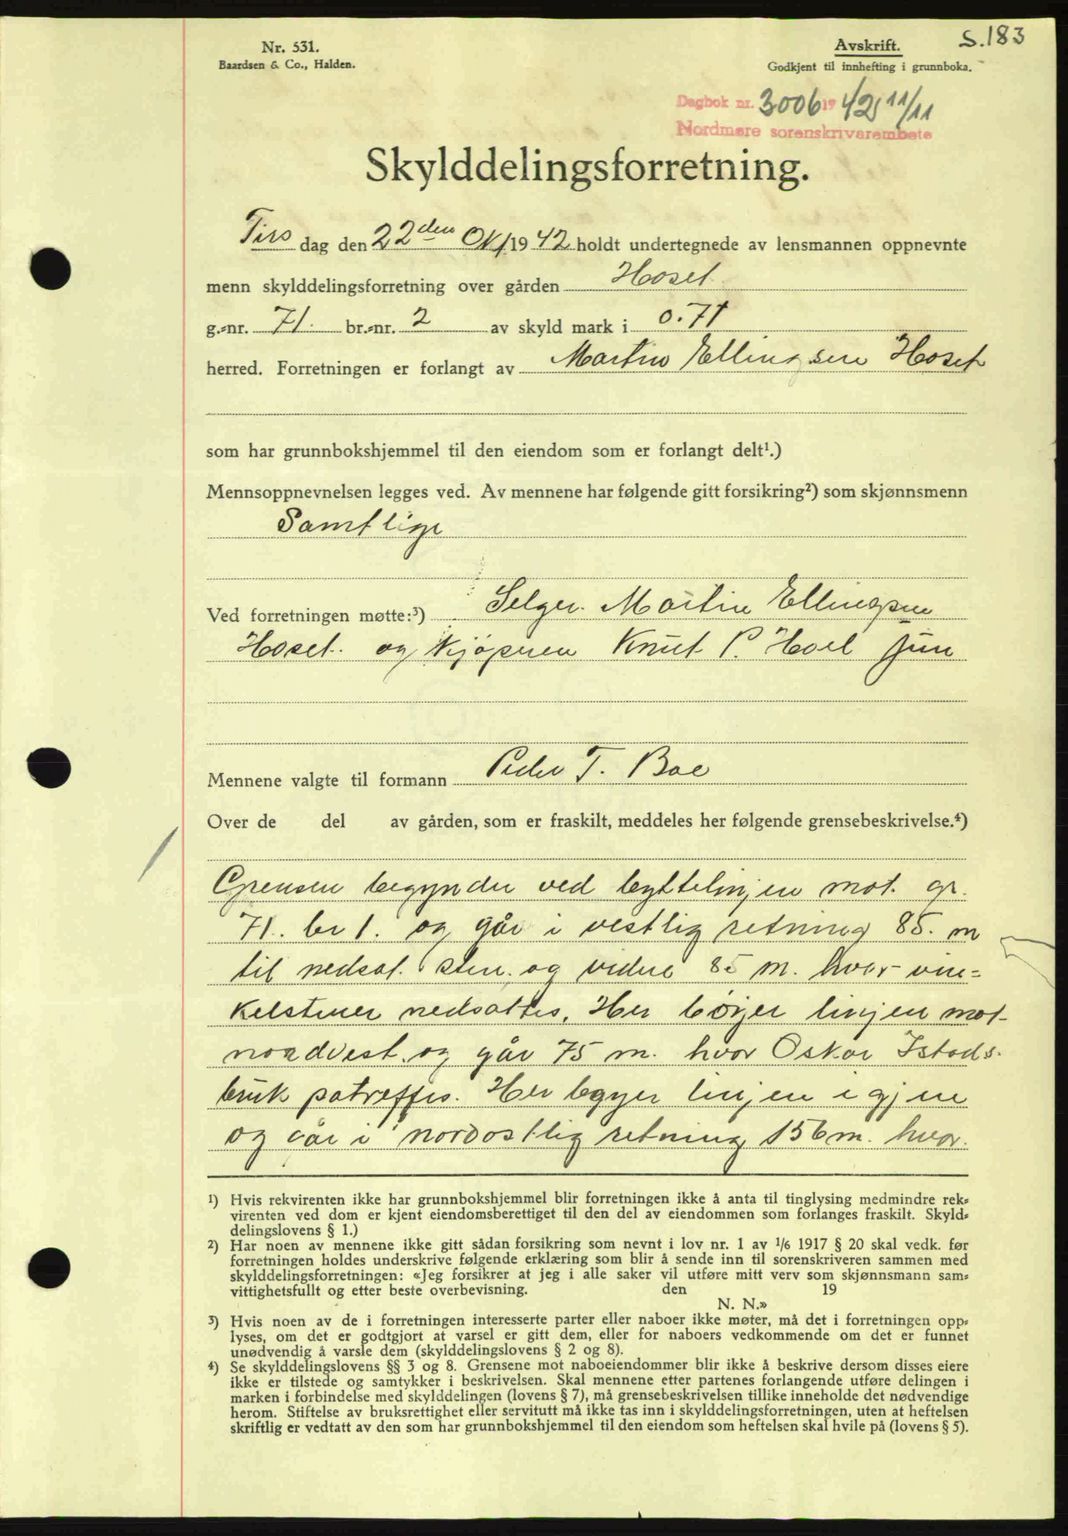 Nr. 531.
Baardsen & Co., Halden.
Avskrift.
Godkjent til innhefting i grunnboka.
S. 183
Dagbok nr. 3006 1942 11/11
Nordmøre sorenskrivarembete
Skylddelingsforretning.
Tirsdag den 22den Okt 1942 holdt undertegnede av lensmannen oppnevnte
menn skylddelingsforretning over gården Hoset
g.-nr. 71. br.-nr. 2 av skyld mark i 0.71
herred. Forretningen er forlangt av Martin Ellingsen Hoset
som har grunnbokshjemmel til den eiendom som er forlangt delt¹.)
Mennsoppnevnelsen legges ved. Av mennene har følgende gitt forsikring²) som skjønnsmenn
Samtlige
Ved forretningen møtte:³) Selger. Martin Ellingsen
Hoset. og kjøperen Knut P. Hoel jun
Mennene valgte til formann Peder T. Boe
Over de del av gården, som er fraskilt, meddeles her følgende grensebeskrivelse.⁴)
Grensen begynder ved byttelinjen mot. gr.
71. br 1. og går i vestlig retning 85. m
til nedsat. sten. og videre 85 m. hvor vin=
kelstener nedsattes. Her bøijer linjen mot
nordvest. og går 75 m. hvor Oskar Istads.
bruk patreffes. Her bøyer linjen igjen
og går i nordostlig retning 156 m. hvor.
¹) Hvis rekvirenten ikke har grunnbokshjemmel blir forretningen ikke å anta til tinglysing medmindre rek-
virenten ved dom er kjent eiendomsberettiget til den del av eiendommen som forlanges fraskilt. Skyld-
delingslovens § 1.)
²) Har noen av mennene ikke gitt sådan forsikring som nevnt i lov nr. 1 av 1/6 1917 § 20 skal vedk. før
forretningen holdes underskrive følgende erklæring som blir å sende inn til sorenskriveren sammen med
skylddelingsforretningen: «Jeg forsikrer at jeg i alle saker vil utføre mitt verv som skjønnsmann sam-
vittighetsfullt og etter beste overbevisning. den 19
N. N.»
³) Hvis noen av de i forretningen interesserte parter eller naboer ikke møter, må det i forretningen opp-
lyses, om det er godtgjort at varsel er gitt dem, eller for naboers vedkommende om det er funnet
unødvendig å varsle dem (skylddelingslovens § 2 og 8).
⁴) Se skylddelingslovens §§ 3 og 8. Grensene mot naboeiendommer blir ikke å beskrive dersom disses eiere
ikke er tilstede og samtykker i beskrivelsen. Skal mennene etter partenes forlangende utføre delingen i
marken i forbindelse med skylddelingen (lovens § 7), må grensebeskrivelsen tillike inneholde det nødvendige
herom. Stiftelse av bruksrettighet eller servitutt må ikke tas inn i skylddelingsforretningen, uten at heftelsen
skriftlig er vedtatt av den som har grunnbokshjemmel til den eiendom som heftelsen skal hvile på (lovens § 5).